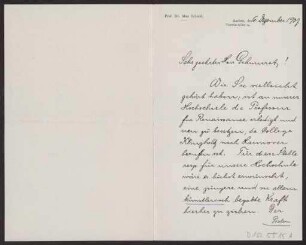 Prof. Dr. Max
5. Dezember 1909
Sehr geehrter Herr Geheimrat!
Wie Sie vielleicht
gehört haben, ist an unserer
Hochschule die Professur
für Renaissance erledigt und
neu zu besetzen, da College
nach Hannover
Für diese Stelle
und für unsere Hochschule
wäre es höchst erwünscht,
eine jüngere und vor allem
künstlerisch begabte Kraft
hierher zu ziehen. Der